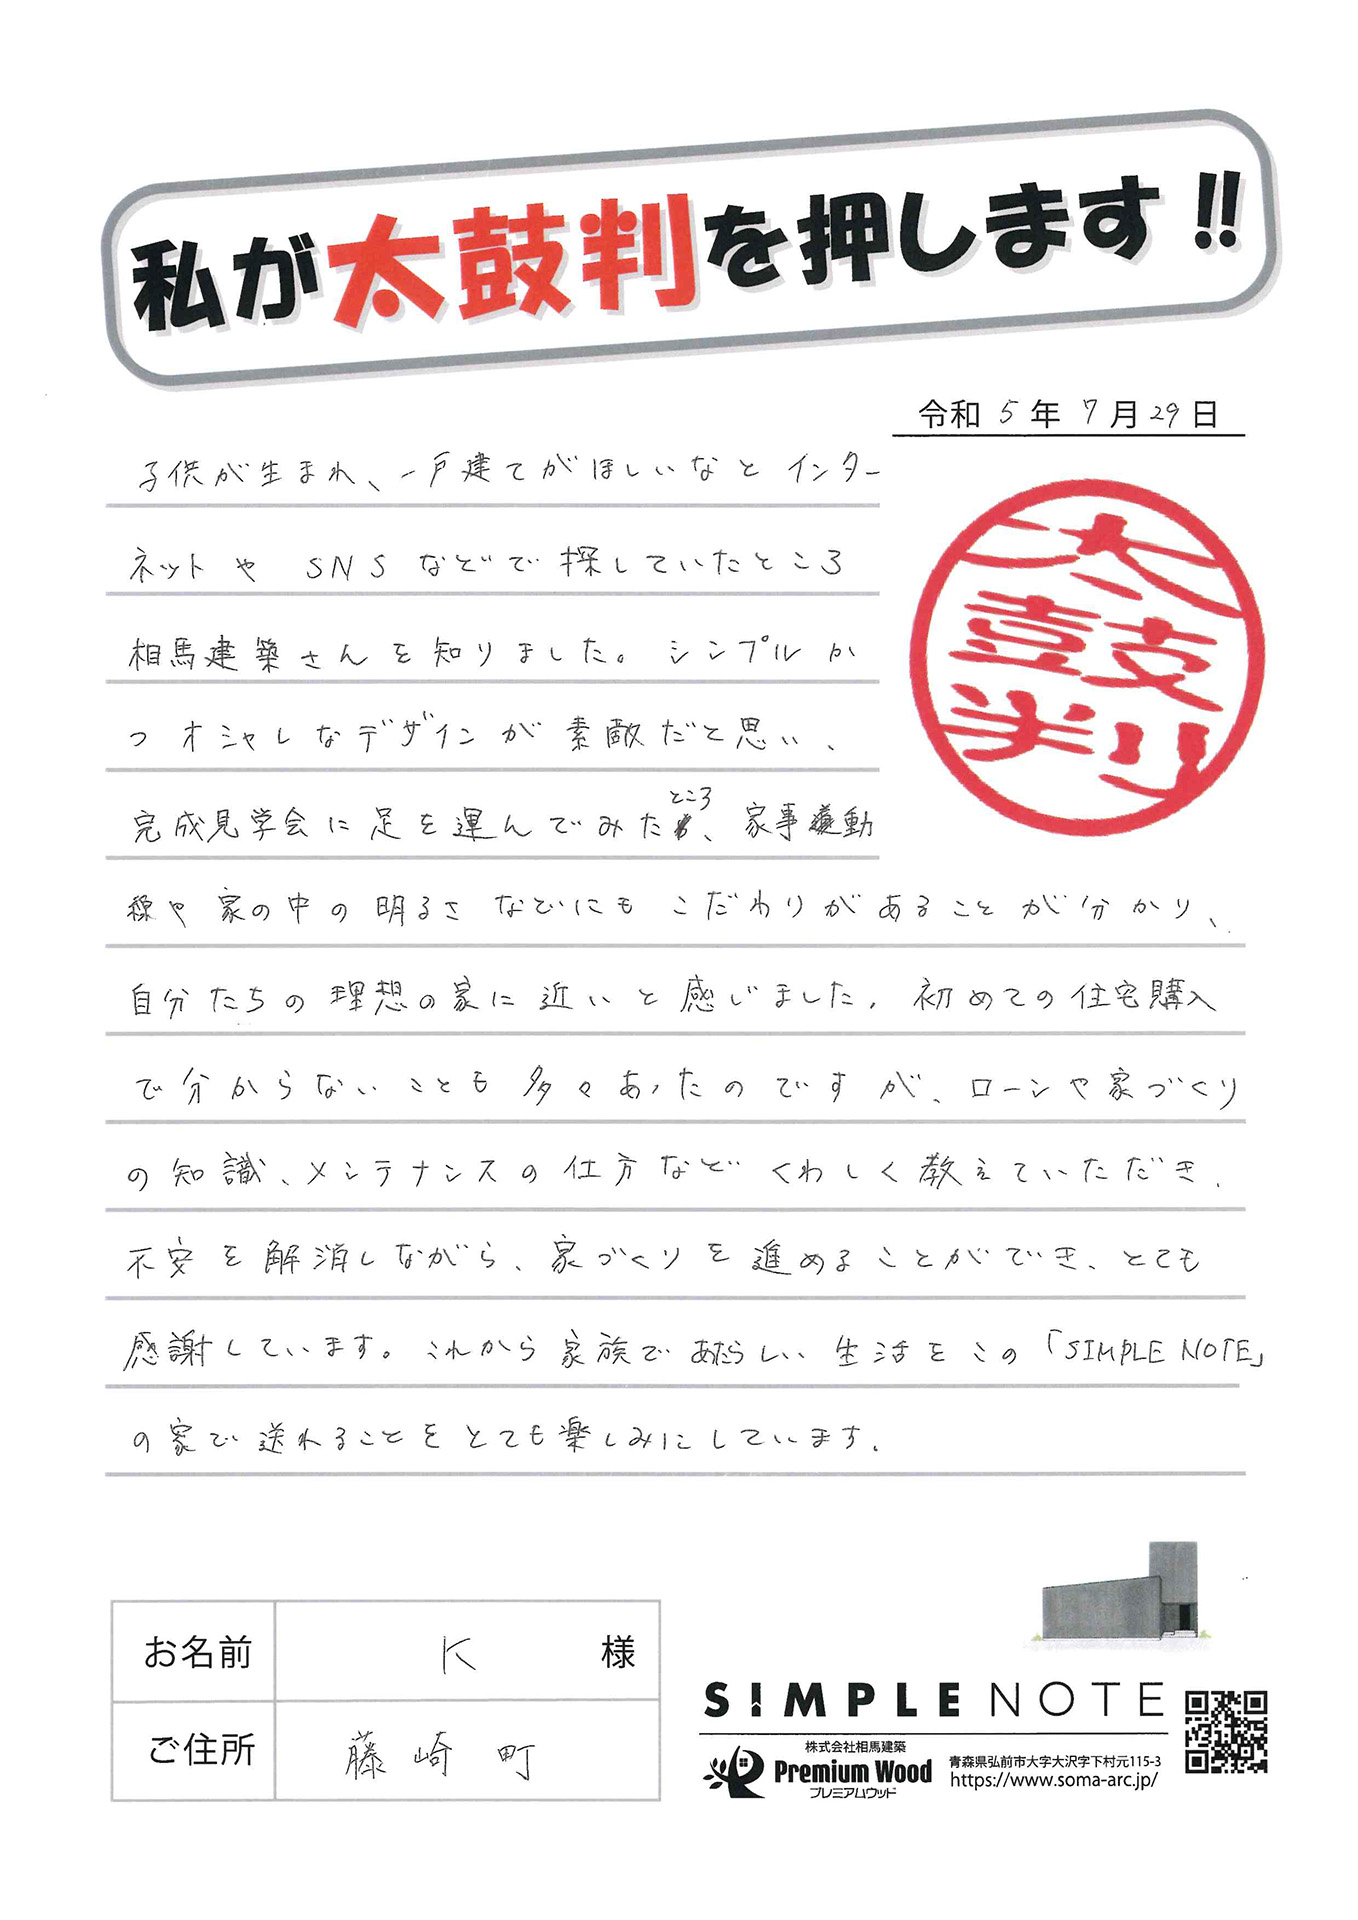 私が太鼓判を押します!!
令和5年7月29日
子供が生まれ、一戸建てがほしいなとインター
ネットや SNSなどで探していたところ
相馬建築さんを知りました。シンプルか
つオシャレなデザインが素敵だと思い、
完成見学会に足を運んでみたところ、家事動
線や家の中の明るさなどにもこだわりがあることが分かり、
自分たちの理想の家に近いと感じました。初めての住宅購入
で分からないことも多々あったのですが、ローンや家づくり
の知識、メンテナンスの仕方などくわしく教えていただき、
不安を解消しながら、家づくりを進めることができ、とても
感謝しています。これから家族であたらしい生活をこの「SIMPLE NOTE」
の家で送れることをとても楽しみにしています。
太鼓判
お名前 K 様
ご住所 藤崎町
SIMPLE NOTE
株式会社相馬建築
Premium Wood
プレミアムウッド
青森県弘前市大字大沢字下村元115-3
https://www.soma-arc.jp/